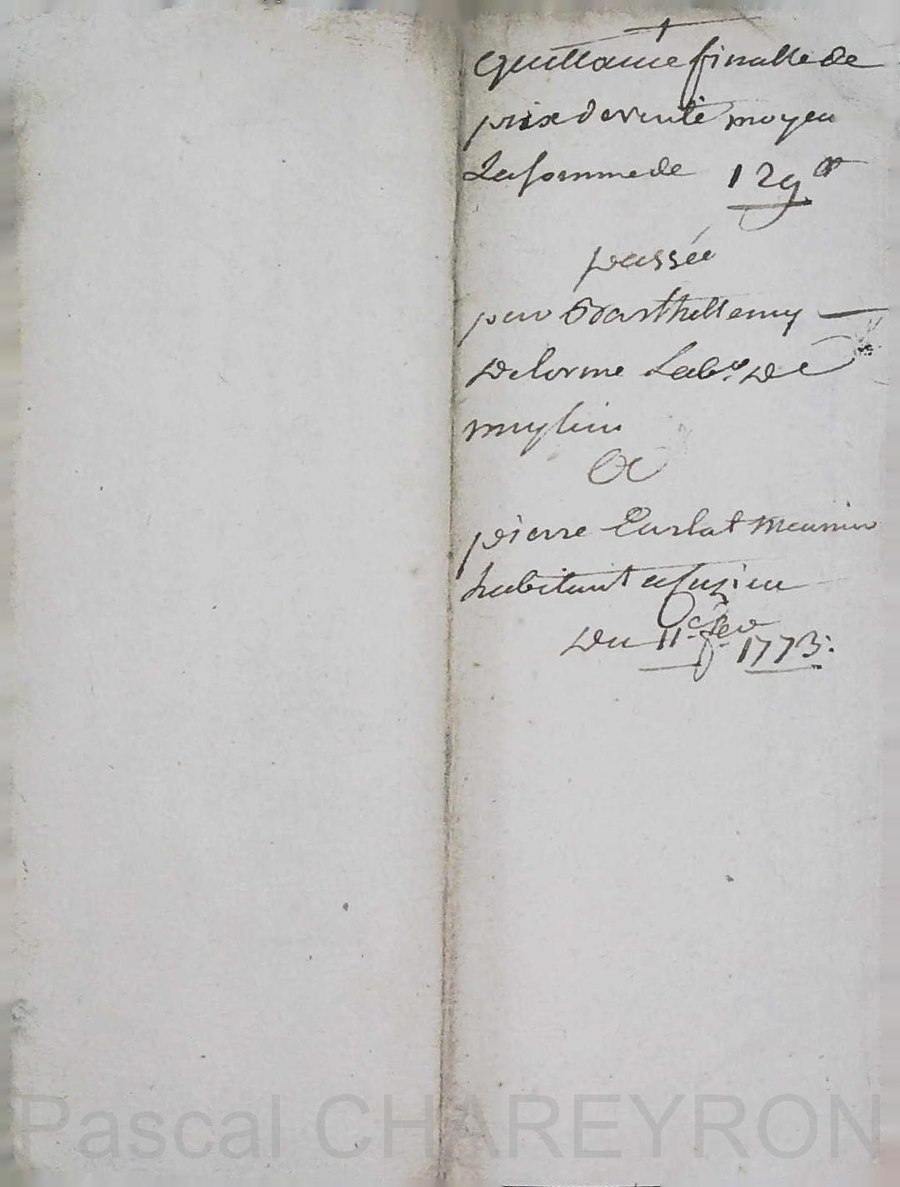 Quittance finalle de
prix de vente moyen
La somme de 129 ₶
passée
par Barthellemy
Delorme Labr. de
A
pierre Curlat meunier
habitant a
Du 11e. fev 1773:
Pascal CHAREYRON